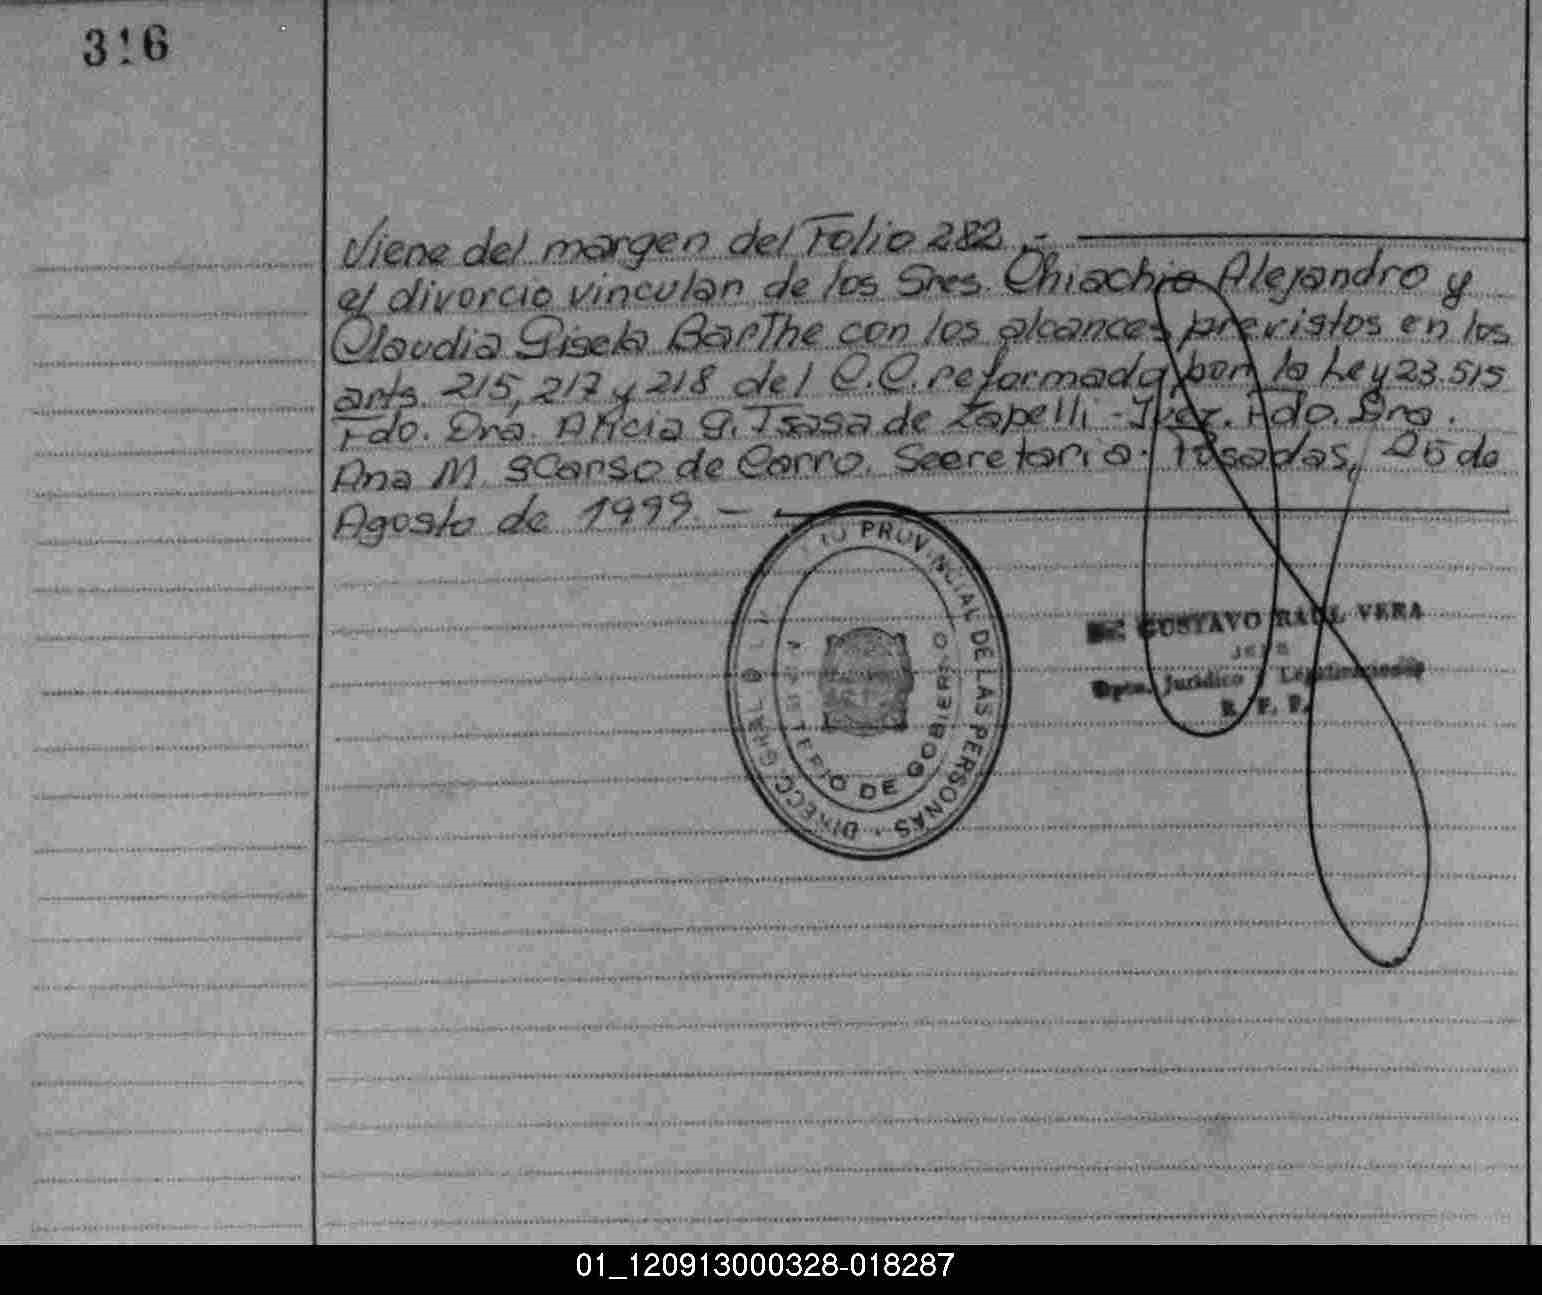 316
Viene del margen del Folio 282.-
el divorcio vincular de los Sres. Chiachio Alejandro y
Claudia Gisela Barthe con los alcances previstos en los
arts 215, 217 y 218 del C.C. reformado por la Ley 23.515
Fdo. Dra. Alicia G. Isasa de Zapelli - Juez. Fdo. Dra.
Ana M. Scanso de Carro. Secretaria. Posadas, 25 de
Agosto de 1999. -
PROVINCIAL DE LAS PERSONAS
DE GOBIERNO
GUSTAVO RAUL VERA
JEFE
Dpto. Jurídico
01_120913000328-018287